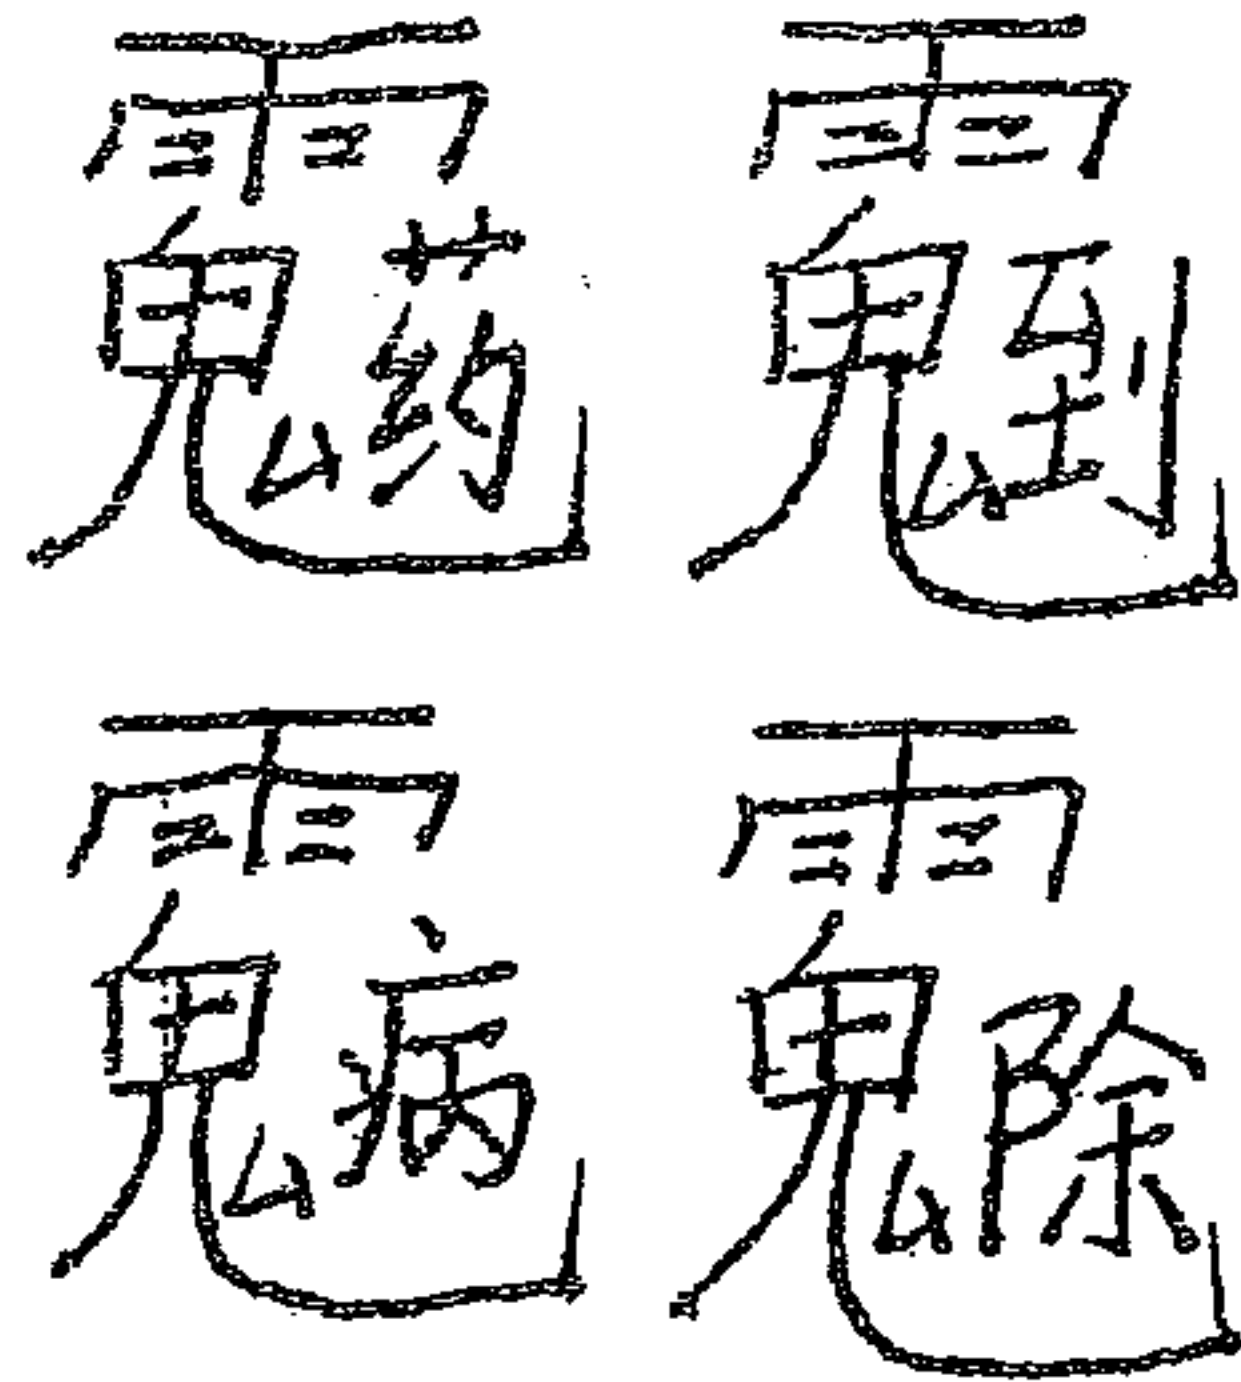 ⿱雨⿺鬼药 ⿱雨⿺鬼到
⿱雨⿺鬼病 ⿱雨⿺鬼除